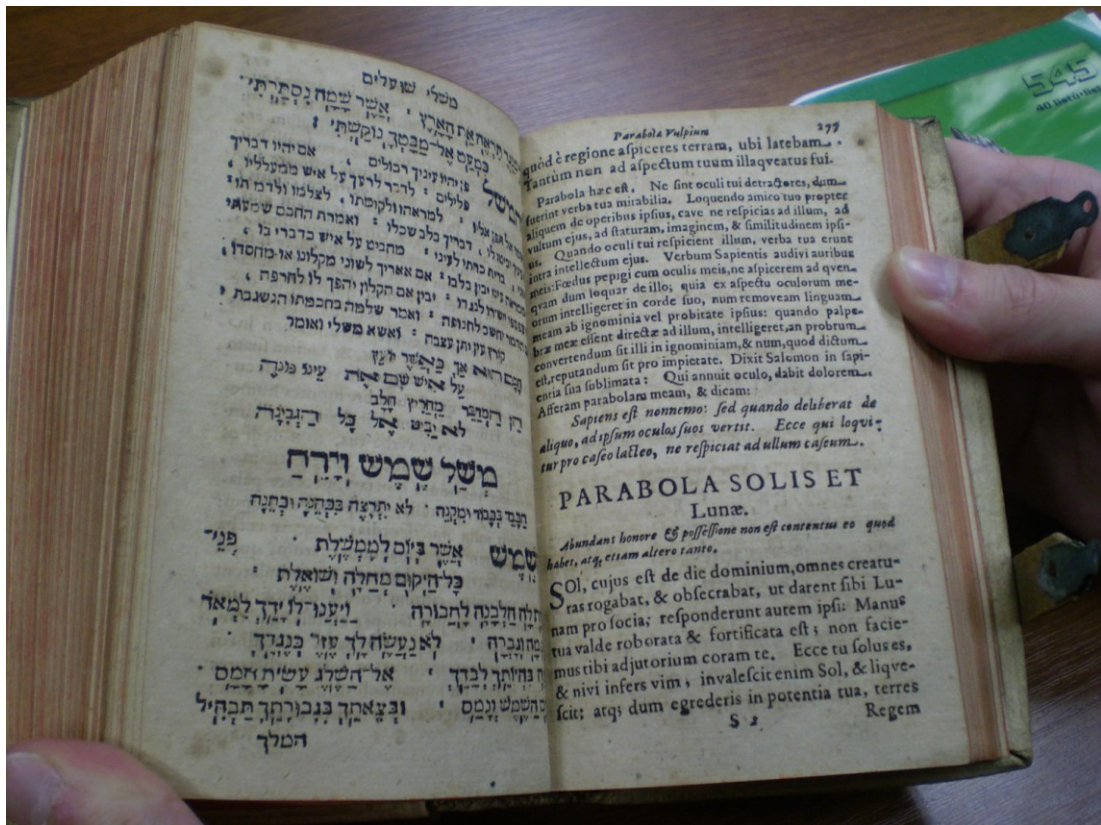 משלי שועלים
אֲשֶׁר שָׁמָּה נִסְתָּרְתִּי
כִּמְעַט אֶל־מַבָּטְךָ נוֹקַשְׁתִּי
פן יהיו עיניך רכולים אם יהיו דבריך
פלילים לדבר לרעך על איש ממעלליו
למראהו ולקומתו לצלמו ולדמותו
דבריך בלב שכלו ואמרת החכם שמעתי
ברית כרתי לעיני מהביט על איש כדברי בו
יבין בלבו אם אאריך לשוני מקלונו או מחסדו
ובין אם הקלון יהפך לו לחרפה
יחשב לחנופה ואמר שלמה בחכמתו הנשגבת
קורץ עין יתן עצבת ואשא משלי ואומר
אך כַּאֲשֶׁר יוֹעֵץ
עַל אִישׁ שָׂם אֶת עֵינוֹ
הֵן הַמְדַבֵּר מֵחֲרִיץ חָלָב
לֹא יַבִּיט אֶל כָּל הַגְּבִינָה
מְשַׁל שֶׁמֶשׁ וְיָרֵחַ
לא יִתְרַצֶּה
שֶׁמֶשׁ אֲשֶׁר בַּיּוֹם לְמֶמְשֶׁלֶת פְּנֵי־
כָּל־הַיְקוּם מְחַלָּה וְשׁוֹאֶלֶת
לָתֵת לָהּ הַלְּבָנָה לַחֲבוּרָה וַיַּעֲנוּ־לוֹ יָדֵךְ לִמְאֹד
וְגָבְרָה לֹא נַעֲשֶׂה לָּךְ עֵזֶר כְּנֶגְדֵּךְ
בִּהְיוֹתֵךְ לְבַדֵּךְ אֶל־הַשֶּׁלֶג עָשִׂית חָמָס
הַשֶּׁמֶשׁ וְנָמָס וּבְצֵאתֵךְ בִּגְבוּרָתֵךְ תַּבְהִיל
המלך
Parabola Vulpium 277
quòd è regione aspiceres terram, ubi latebam.
Tantùm non ad aspectum tuum illaqveatus fui.
Parabola hæc est. Ne sint oculi tui detractores, dum
fuerint verba tua mirabilia. Loquendo amico tuo propter
aliquem de operibus ipsius, cave ne respicias ad illum, ad
vultum ejus, ad staturam, imaginem, & similitudinem ipsi-
us. Quando oculi tui respicient illum, verba tua erunt
intra intellectum ejus. Verbum Sapientis audivi auribus
meis: Fœdus pepigi cum oculis meis, ne aspicerem ad qven-
qvam dum loquar de illo; quia ex aspectu oculorum me-
orum intelligeret in corde suo, num removeam linguam
meam ab ignominia vel probitate ipsius: quando palpe-
bræ meæ essent directæ ad illum, intelligeret, an probrum
convertendum sit illi in ignominiam, & num, quod dictum
est, reputandum sit pro impietate. Dixit Salomon in sapi-
entia sua sublimata: Qui annuit oculo, dabit dolorem.
Afferam parabolam meam, & dicam:
Sapiens est nonnemo: sed quando deliberat de
aliquo, ad ipsum oculos suos vertit. Ecce qui loqui-
tur pro caseo lacteo, ne respiciat ad ullum caseum.
PARABOLA SOLIS ET
Lunæ.
Abundans honore & possessione non est contentus eo quod
habet, atq; etiam altero tanto.
SOl, cujus est de die dominium, omnes creatu-
ras rogabat, & obsecrabat, ut darent sibi Lu-
nam pro socia; responderunt autem ipsi: Manus
tua valde roborata & fortificata est; non facie-
mus tibi adjutorium coram te. Ecce tu solus es,
& nivi infers vim; invalescit enim Sol, & liqve-
scit: atq; dum egrederis in potentia tua, terres
S 3 Regem
545
40 listů·list